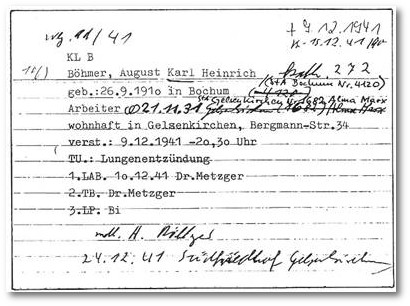 /41 + 9.12.1941
KL B 15.12.41
Böhmer, August Karl Heinrich kath. 272
geb.:26.9.1910 in Bochum (StA Bochum Nr. 4120)
Arbeiter 21.11.31 Gelsenkirchen 1682 Alma Marx
wohnhaft in Gelsenkirchen, Bergmann-Str.34
verst.: 9.12.1941 -2o,3o Uhr
TU.: Lungenentzündung
1.LAB. 1o.12.41 Dr.Metzger
2.TB. Dr.Metzger
3.LP. Bi
H.
24.12.41 Südfriedhof Gelsenkirchen